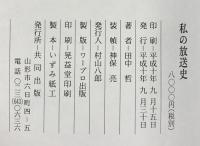 私の放送史
八〇〇〇円(税別)
印刷=平成十年 九月十五日
発行=平成十年 九月二十日
著者=田中 哲
装幀=神保 亮
発行人=村山八郎
製版=ワープロ出版
印刷=晃益堂印刷
製本=いずみ紙工
発行所=共同出版
山形市六日町四‐五
電話〇二三(643)〇六三六